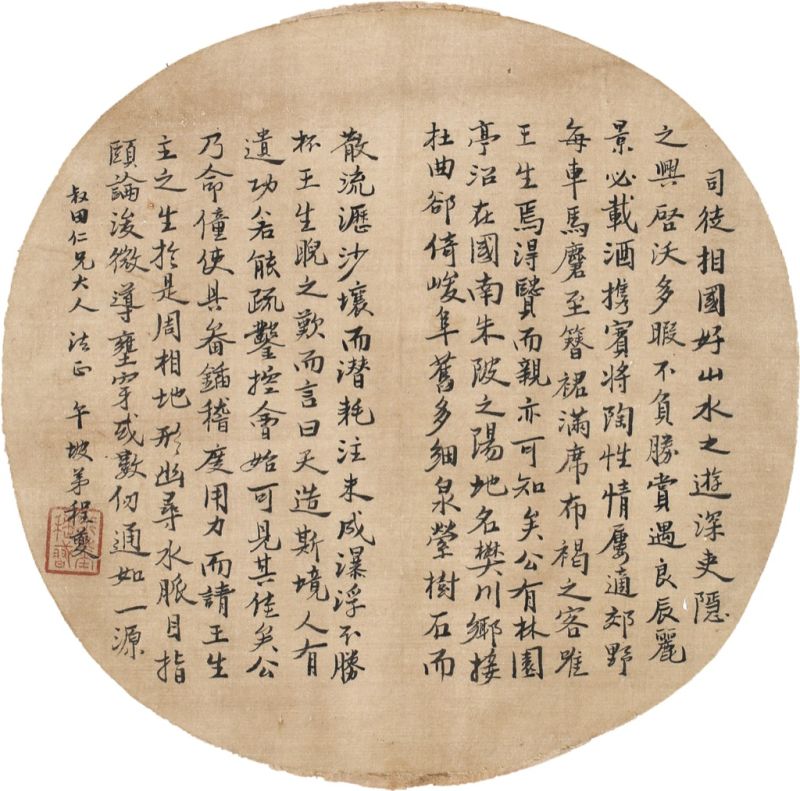 司徒相國好山水之遊深吏隱
之興啓沃多暇不負勝賞遇良辰麗
景必載酒携賓將陶性情屢適郊野
每車馬麏至簪裾滿席布褐之客唯
王生焉淂賢而親亦可知矣公有林園
亭沼在國南朱陂之陽地名樊川鄉接
杜曲郤倚峻阜舊多細泉縈樹石而
散流瀝沙壤而潛耗注未成瀑浮不勝
杯王生睨之歎而言曰天造斯境人有
遺功若能疏鑿控會始可見其佳矣公
乃命僮使具畚鍤稽度用力而請王生
主之生於是周相地形幽尋水脈目指
頤論浚微導壅穿或數仞通如一源
叔田仁兄大人法正 午坡弟程夔